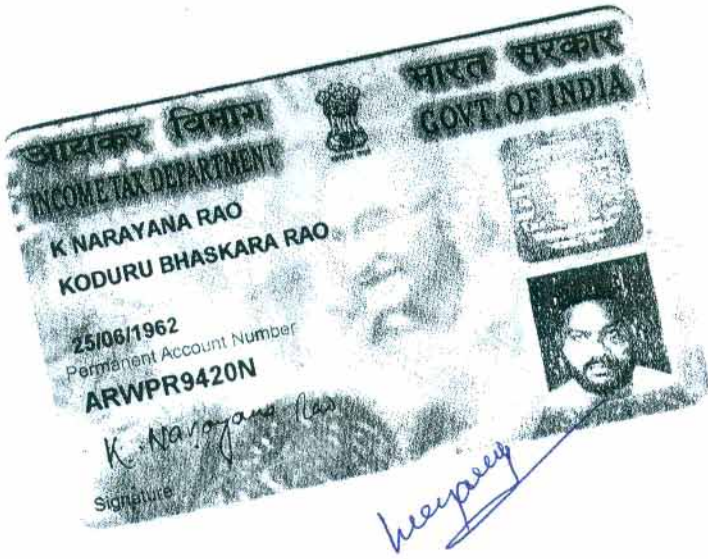 आयकर विभाग
INCOME TAX DEPARTMENT
भारत सरकार
GOVT. OF INDIA
K NARAYANA RAO
KODURU BHASKARA RAO
25/06/1962
Permanent Account Number
ARWPR9420N
K. Narayana Rao
Signature